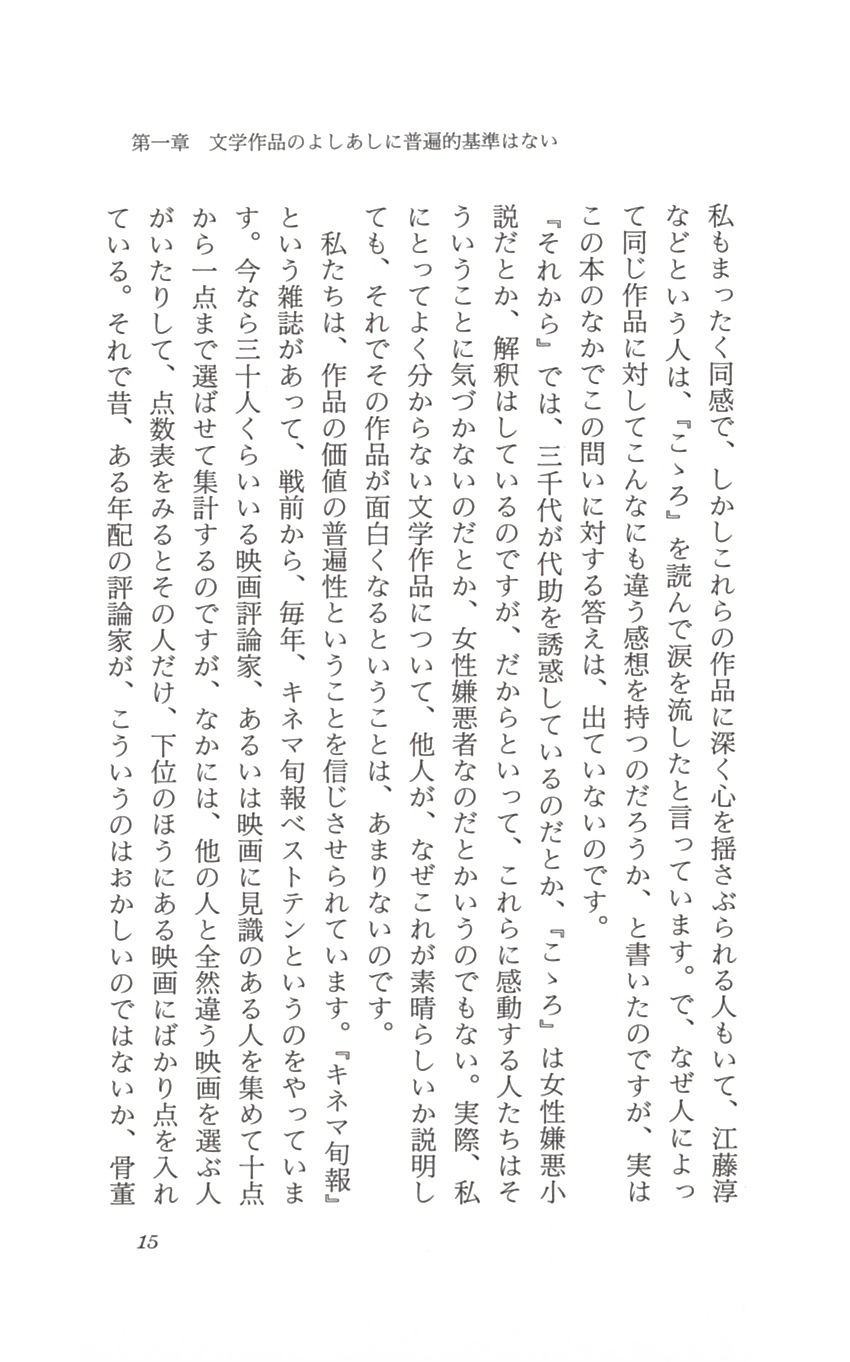 第一章　文学作品のよしあしに普遍的基準はない
私もまったく同感で、しかしこれらの作品に深く心を揺さぶられる人もいて、江藤淳
などという人は、『こゝろ』を読んで涙を流したと言っています。で、なぜ人によっ
て同じ作品に対してこんなにも違う感想を持つのだろうか、と書いたのですが、実は
この本のなかでこの問いに対する答えは、出ていないのです。
『それから』では、三千代が代助を誘惑しているのだとか、『こゝろ』は女性嫌悪小
説だとか、解釈はしているのですが、だからといって、これらに感動する人たちはそ
ういうことに気づかないのだとか、女性嫌悪者なのだとかいうのでもない。実際、私
にとってよく分からない文学作品について、他人が、なぜこれが素晴らしいか説明し
ても、それでその作品が面白くなるということは、あまりないのです。
　私たちは、作品の価値の普遍性ということを信じさせられています。『キネマ旬報』
という雑誌があって、戦前から、毎年、キネマ旬報ベストテンというのをやっていま
す。今なら三十人くらいいる映画評論家、あるいは映画に見識のある人を集めて十点
から一点まで選ばせて集計するのですが、なかには、他の人と全然違う映画を選ぶ人
がいたりして、点数表をみるとその人だけ、下位のほうにある映画にばかり点を入れ
ている。それで昔、ある年配の評論家が、こういうのはおかしいのではないか、骨董
15